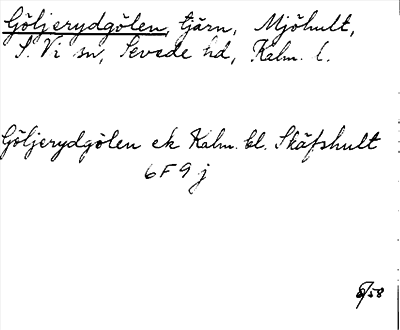 Göljerydgölen, tjärn, Mjöhult,
S. Vi sn, Sevede hd, Kalm. l.
Göljerydgölen ek Kalm. bl. Skäfshult
6F9j
8/58